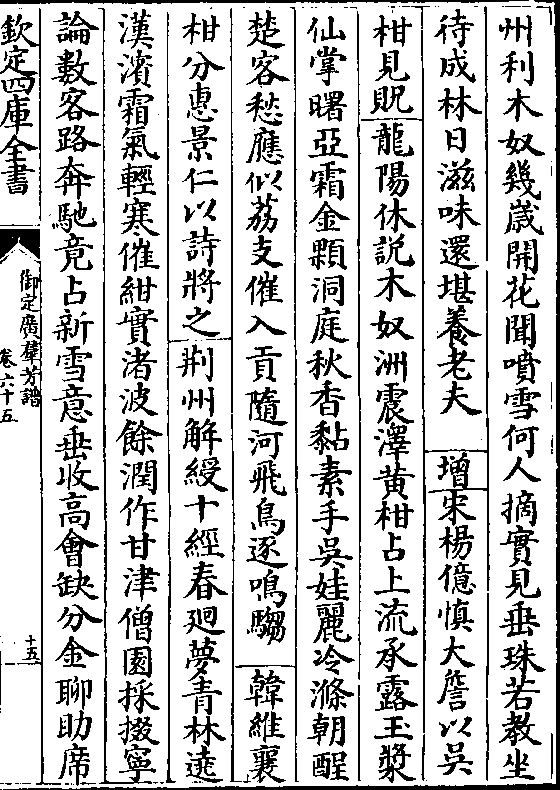 州利木奴幾歲開花聞噴雪何人摘實見垂珠若教坐
待成林日滋味還堪養老夫　增宋楊億慎大詹以吳
柑見貺　龍陽休説木奴洲震澤黄柑占上流承露玉漿
仙掌曙亞霜金顆洞庭秋香黏素手吳娃麗冷滌朝酲
楚客愁應似荔支催入貢隨河飛鳥逐鳴騶　韓維襄
柑分惠景仁以詩將之　荆州解綬十經春廻夢青林遶
漢濱霜氣輕寒催紺實渚波餘潤作甘津僧園採掇寧
論數客路奔馳竟占新雪意垂收高會缺分金聊助席
欽定四庫全書
御定廣羣芳譜
卷六十五
十五